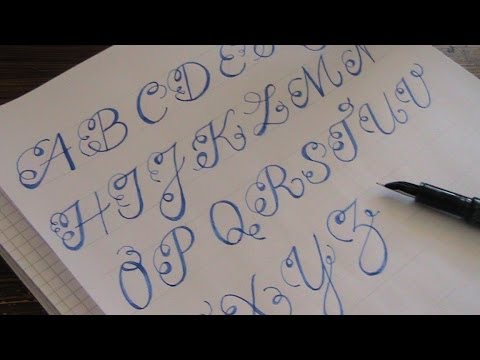 A B C D E
H I J K L M N
O P Q R S T U V
X Y Z